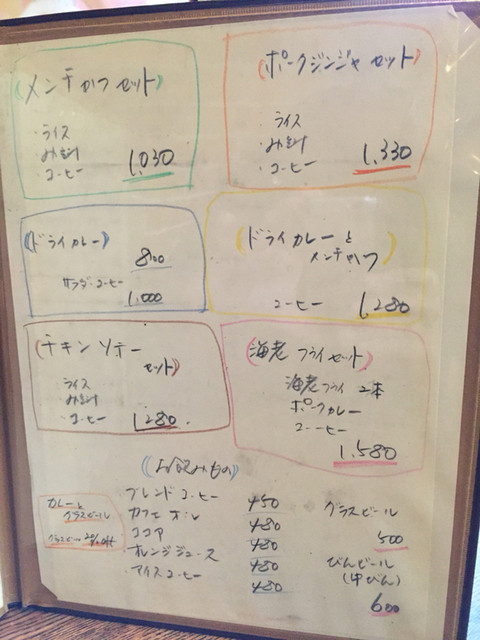 メンチかつセット
・ライス
・みそ汁
・コーヒー 1,030
ポークジンジャセット
・ライス
・みそ汁
・コーヒー 1,330
ドライカレー
800
サラダ・コーヒー
1,000
ドライカレーと
メンチかつ
コーヒー 1,280
チキンソテー
セット
ライス
みそ汁
・コーヒー 1,280
海老フライセット
海老フライ 2本
ポークカレー
コーヒー
1,580
お飲みもの
ブレンドコーヒー 450
カフェオレ 480
ココア 480
オレンジジュース 480
・アイスコーヒー 480
カレーと
グラスビール
グラスビール
500
びんビール
(中びん)
600